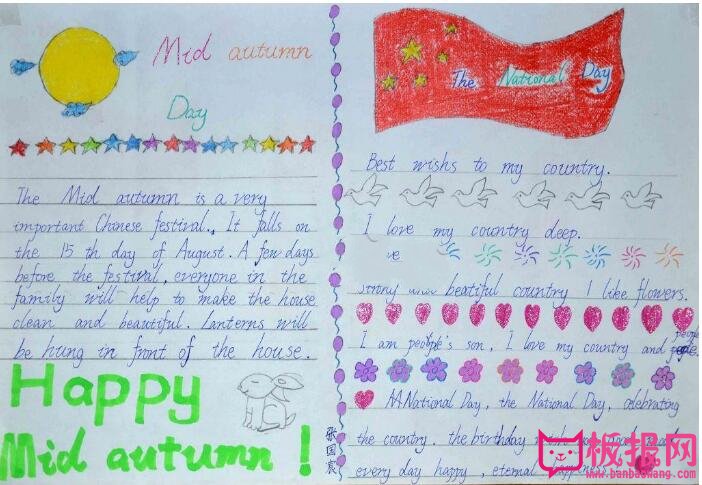 Mid autumn
Day
The Mid autumn is a very
important Chinese festival. It falls on
the 15 th day of August. A few days
before the festival, everyone in the
family will help to make the house
clean and beautiful. Lanterns will
be hung in front of the house.
Happy
Mid autumn !
The National Day
Best wishs to my country.
I love my country deep.
strong beatiful country I like flowers.
I am people's son, I love my country and people
National Day, the National Day, celebrating
the country. the birthday
every day happy, eternal
张国宸
板报网
www.banbaowang.com